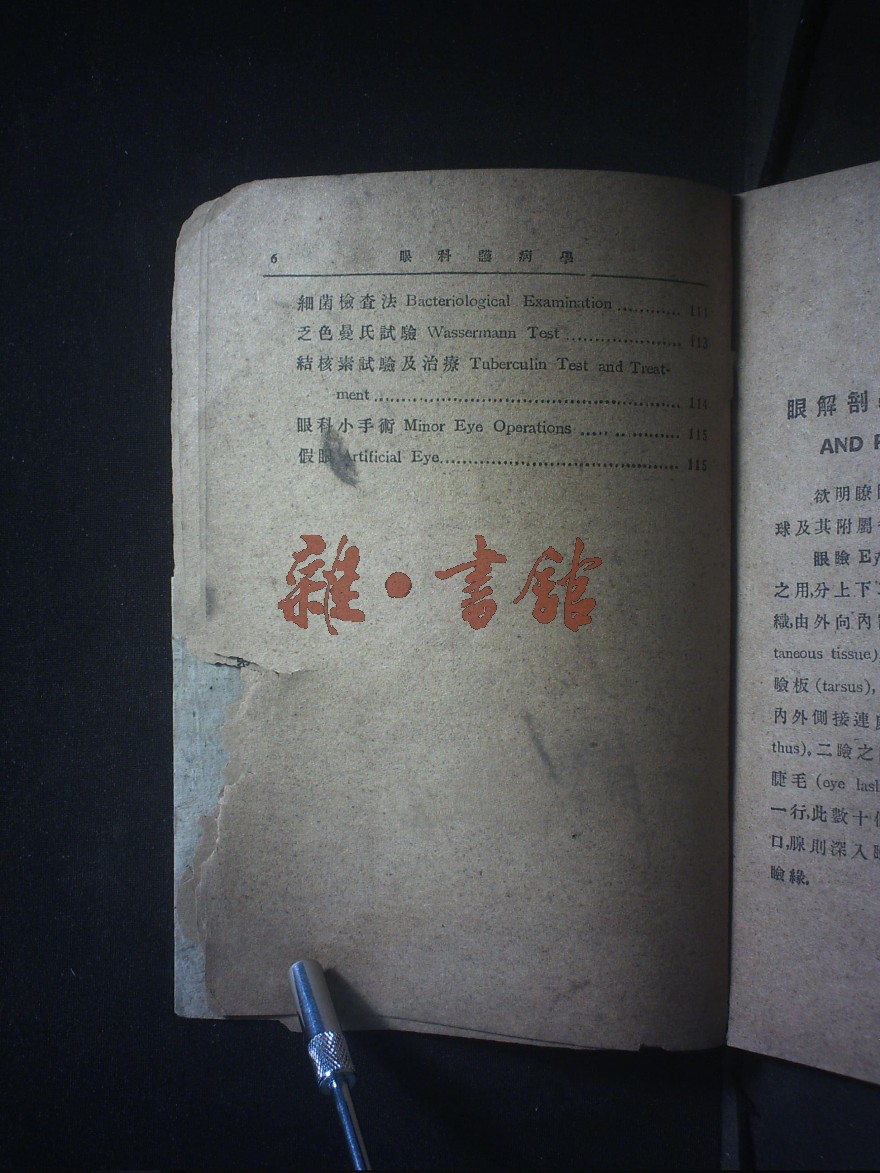 6 眼科護病學
細菌檢查法 Bacteriological Examination ............ 111
乏色曼氏試驗 Wassermann Test ..................... 113
結核素試驗及治療 Tuberculin Test and Treat-
ment ................................................ 114
眼科小手術 Minor Eye Operations .................. 115
假眼 Artificial Eye .......................................... 115
雜·書館
眼解剖
AND
欲明瞭
球及其附屬
眼瞼
之用,分上下
織,由外向內
taneous tissue),
瞼板 (tarsus),
內外側接連
thus)。二瞼之
睫毛 (eye
一行,此數十
口,腺則深入
瞼緣。